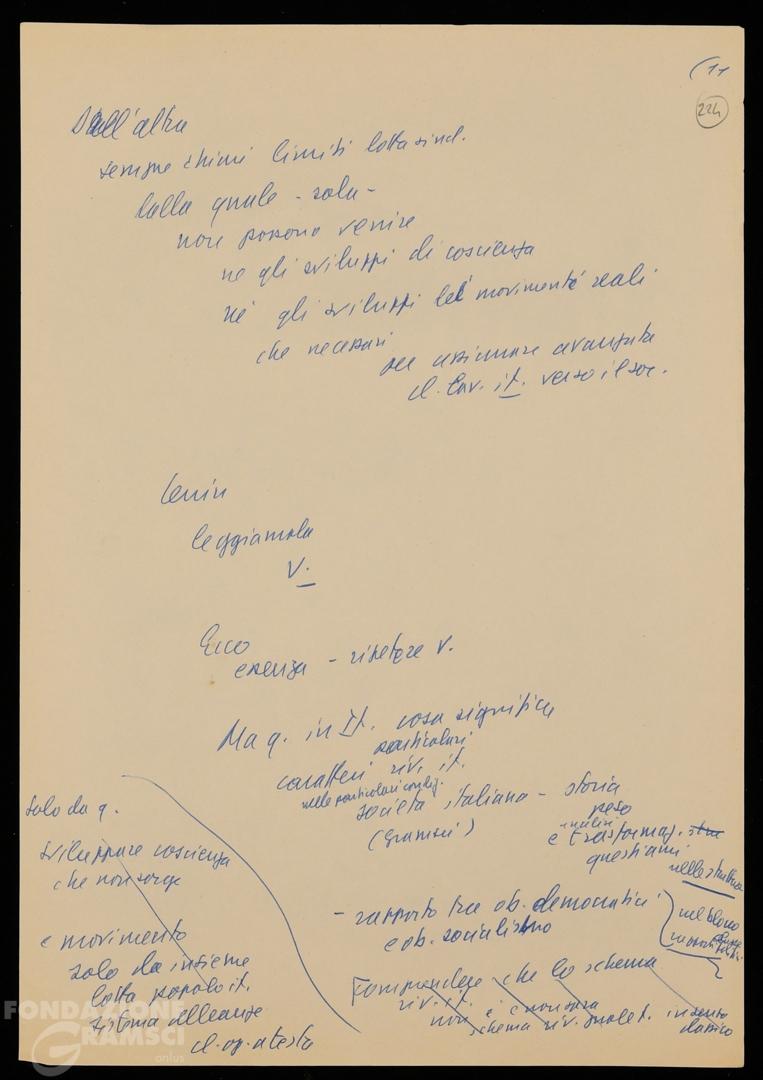 (11
224
Dall'altra
sempre chiari limiti lotta sind.
dalla quale - sola -
non possono venire
né gli sviluppi di coscienza
né gli sviluppi dei movimenti reali
che necessari
per assicurare avanzata
cl. lav. it. verso il soc.
Lenin
leggiamola
V.
Ecco
essenza - ripetere v.
Ma q. in It. cosa significa
particolari
caratteri riv. it.
nelle particolari condiz.
società italiana - storia
(Gramsci)
peso
analisi
e trasformaz. stru
questioni
nelle strutture
nel blocco
- rapporto tra ob. democratici
e ob. socialismo
Comprendere che lo schema
riv. it.
non è e non sarà
schema riv. prolet. in senso
classico
Solo da q.
sviluppare coscienza
che non sorge
e movimento
solo da insieme
lotta popolo it.
sistema alleanze
cl. op. a testa
FONDAZIONE
GRAMSCI
onlus